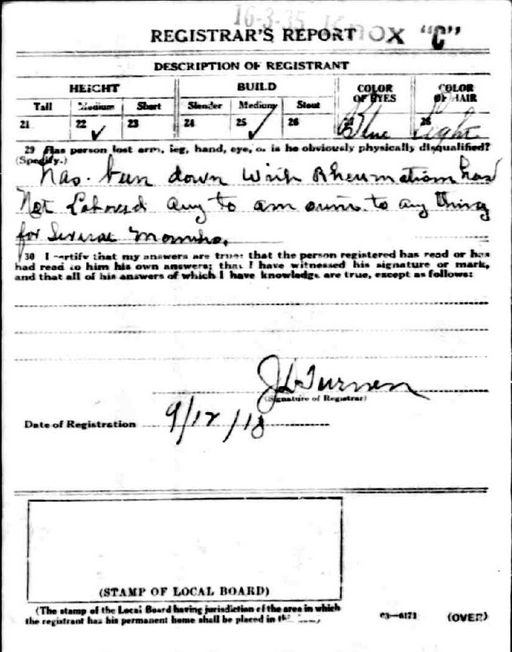 16-3-35 Knox "C"
REGISTRAR'S REPORT
DESCRIPTION OF REGISTRANT
HEIGHT BUILD COLOR OF EYES COLOR OF HAIR
Tall Medium Short Slender Medium Stout
21 22 ✓ 23 24 25 ✓ 26 Blue 28 Light
29 Has person lost arm, leg, hand, eye, or is he obviously physically disqualified?
(Specify.)
has been down With Rheumatism has
Not Labored any to am ount to any thing
for Several Months.
30 I certify that my answers are true; that the person registered has read or has
had read to him his own answers; that I have witnessed his signature or mark,
and that all of his answers of which I have knowledge are true, except as follows:
J L Turner
(Signature of Registrar)
Date of Registration 9/12/18
(STAMP OF LOCAL BOARD)
(The stamp of the Local Board having jurisdiction of the area in which
the registrant has his permanent home shall be placed in
03—6171 (OVER)